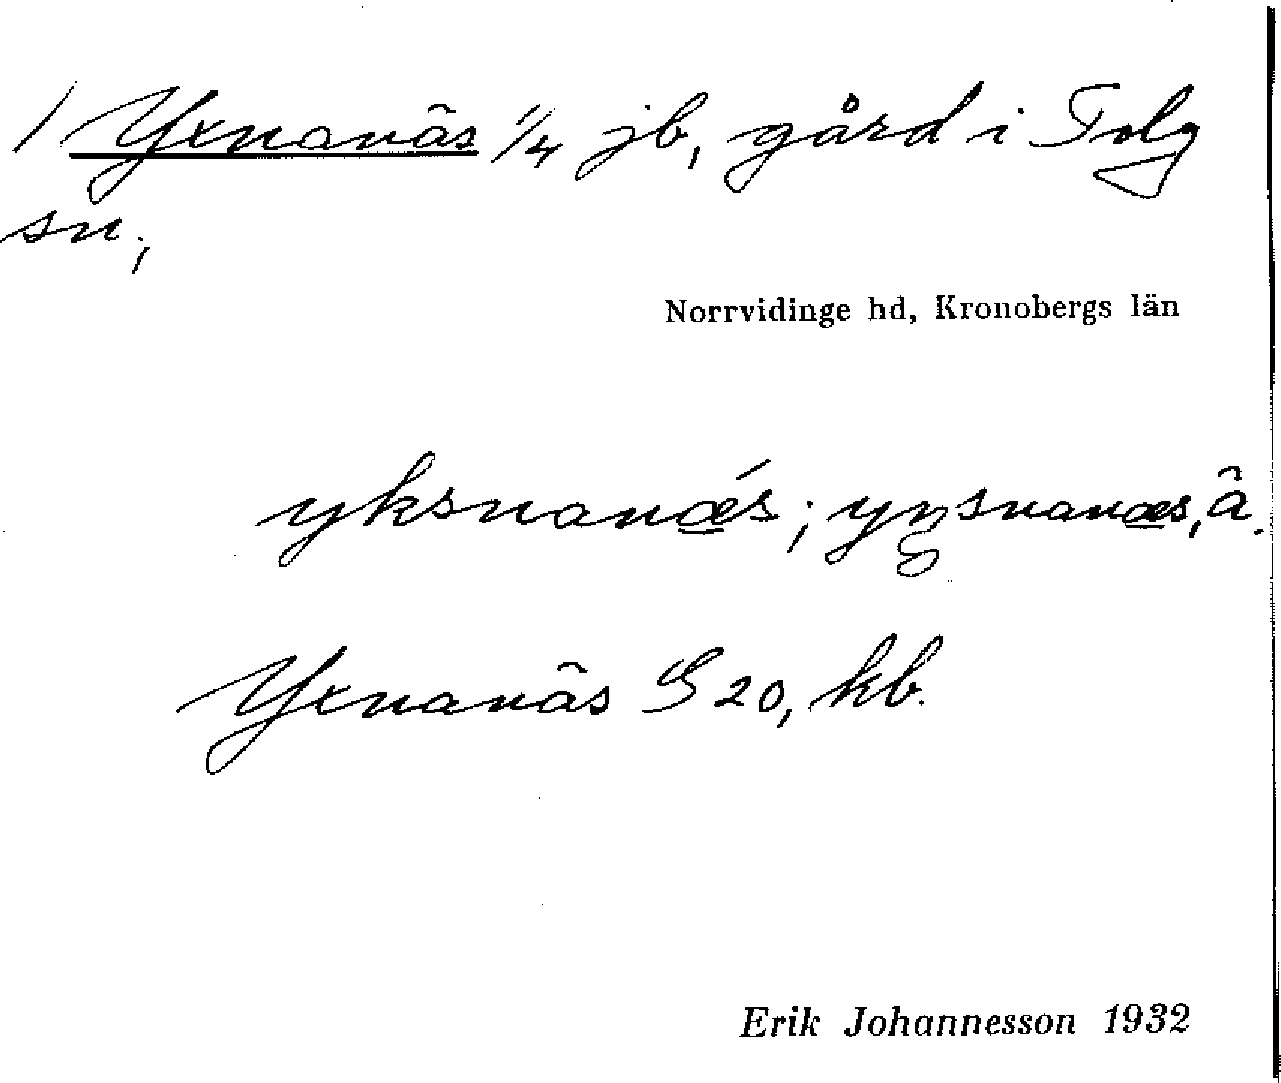 / Yxnanäs 1/4 jb, gård i Tolg
sn;
Norrvidinge hd, Kronobergs län
yksnanæ´s; yŋsnanæs, ä.
Yxnanäs G 20, kb.
Erik Johannesson 1932